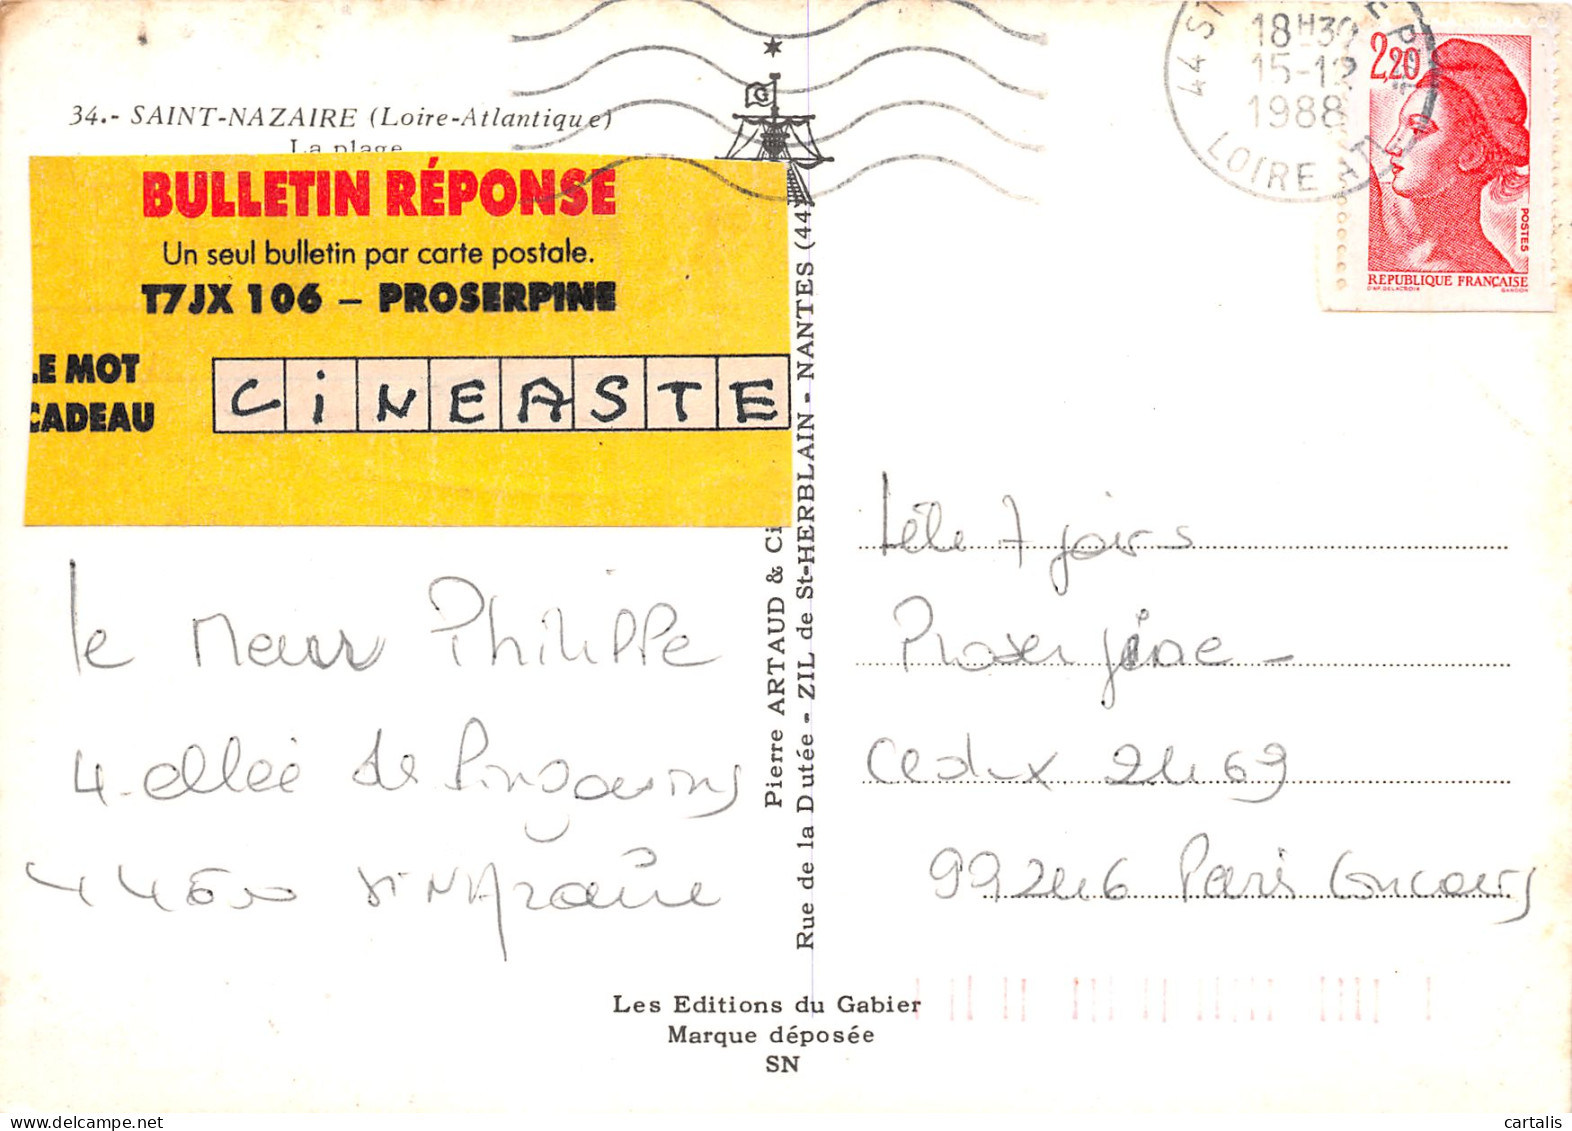 34.- SAINT-NAZAIRE (Loire-Atlantique)
La plage
BULLETIN RÉPONSE
Un seul bulletin par carte postale.
T7JX 106 – PROSERPINE
LE MOT
CADEAU
CiNEASTE
le Philippe
4 allée de
44600 St NAzaire
G
Pierre ARTAUD & Ci
Rue de la Dutée - ZIL de St-HERBLAIN - NANTES (44
Les Editions du Gabier
Marque déposée
SN
44 ST
18H30
15-12
1988
LOIRE ATL
2,20
POSTES
REPUBLIQUE FRANÇAISE
D'AP. DELACROIX GANDON
Télé 7 jours
Proserpine -
Cedex 2469
99246 Paris Concours
cartalis